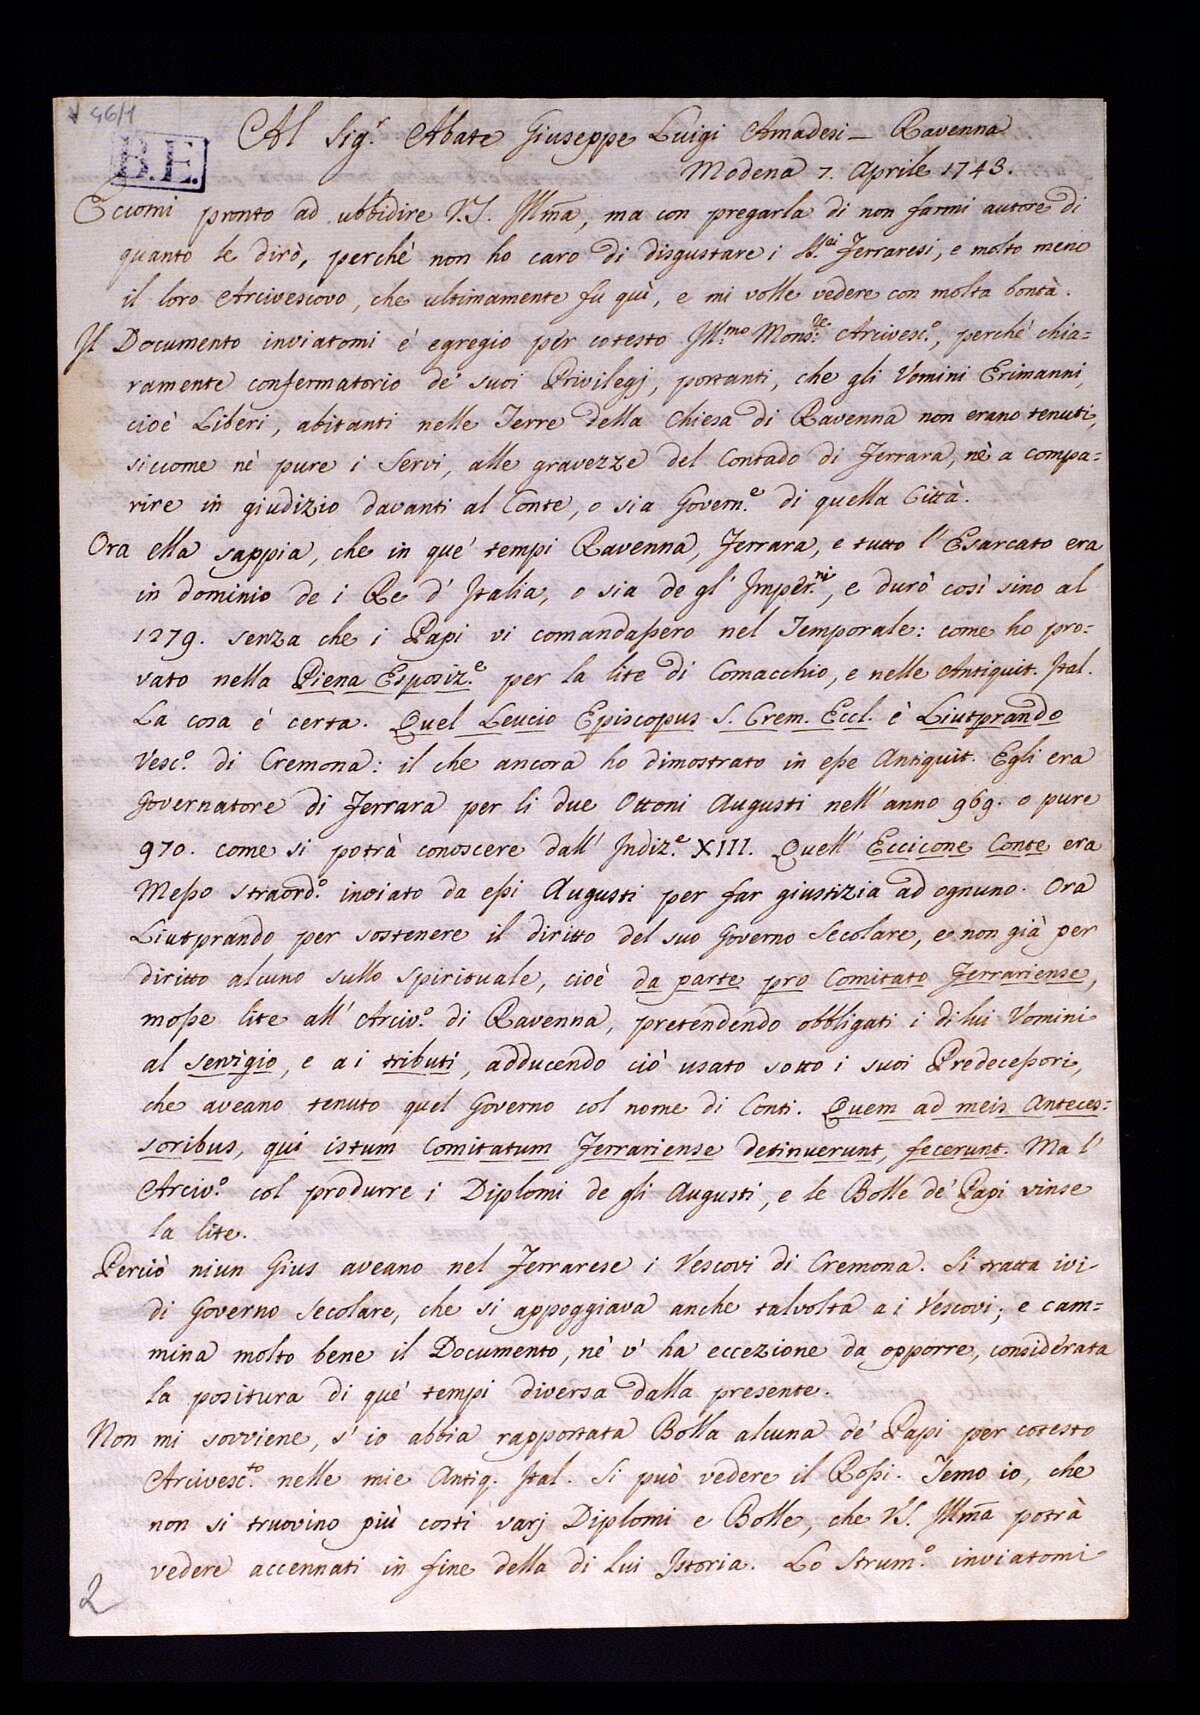 46/1
B.E.
Al Sig.r Abate Giuseppe Luigi Amadesi — Ravenna
Modena 7. Aprile 1743.
Eccomi pronto ad ubbidire V.S. Illma, ma con pregarla di non farmi autore di
quanto le dirò, perchè non ho caro di disgustare i SS.ri Ferraresi, e molto meno
il loro Arcivescovo, che ultimamente fu quì, e mi volle vedere con molta bontà.
Il Documento inviatomi è egregio per cotesto Ill.mo Mons.re Arcivesc.o, perchè chia=
ramente confermatorio de' suoi Privilegj, portanti, che gli Uomini Erimanni,
cioè Liberi, abitanti nelle Terre della Chiesa di Ravenna non erano tenuti,
siccome nè pure i Servi, alle gravezze del Contado di Ferrara, nè a compa=
rire in giudizio davanti al Conte, o sia Govern.e di quella Città.
Ora ella sappia, che in que' tempi Ravenna, Ferrara, e tutto l'Esarcato era
in dominio de i Re d'Italia, o sia de gl'Imper.ri, e durò così sino al
1279. senza che i Papi vi comandassero nel Temporale: come ho pro=
vato nella Piena Esposiz.e per la lite di Comacchio, e nelle Antiquit. Ital.
La cosa è certa. Quel Leucio Episcopus S. Crem. Eccl. è Liutprando
Vesc.o di Cremona: il che ancora ho dimostrato in esse Antiquit. Egli era
Governatore di Ferrara per li due Ottoni Augusti nell'anno 969. o pure
970. come si potrà conoscere dall'Indiz.e XIII. Quell'Eccicone Conte era
Messo straord.o inviato da essi Augusti per far giustizia ad ognuno. Ora
Liutprando per sostenere il diritto del suo Governo Secolare, e non già per
diritto alcuno sullo spirituale, cioè da parte pro Comitato Ferrariense,
mosse lite all'Arciv.o di Ravenna, pretendendo obbligati i di lui Uomini
al servigio, e a i tributi, adducendo ciò usato sotto i suoi Predecessori,
che aveano tenuto quel Governo col nome di Conti. Quem ad meis Anteces=
soribus, qui istum Comitatum Ferrariense detinuerunt, fecerunt. Ma l'
Arciv.o col produrre i Diplomi de gli Augusti, e le Bolle de' Papi vinse
la lite.
Perciò niun Gius aveano nel Ferrarese i Vescovi di Cremona. Si tratta ivi
di Governo Secolare, che si appoggiava anche talvolta a i Vescovi; e cam=
mina molto bene il Documento, nè v'ha eccezione da opporre, considerata
la positura di que' tempi diversa dalla presente.
Non mi sovviene, s'io abbia rapportata Bolla alcuna de' Papi per cotesto
Arcivesc.to nelle mie Antiq. Ital. Si può vedere il Rossi. Temo io, che
non si truovino più costì varj Diplomi e Bolle, che V.S. Illma potrà
vedere accennati in fine della di lui Istoria. Lo Strum.o inviatomi
2